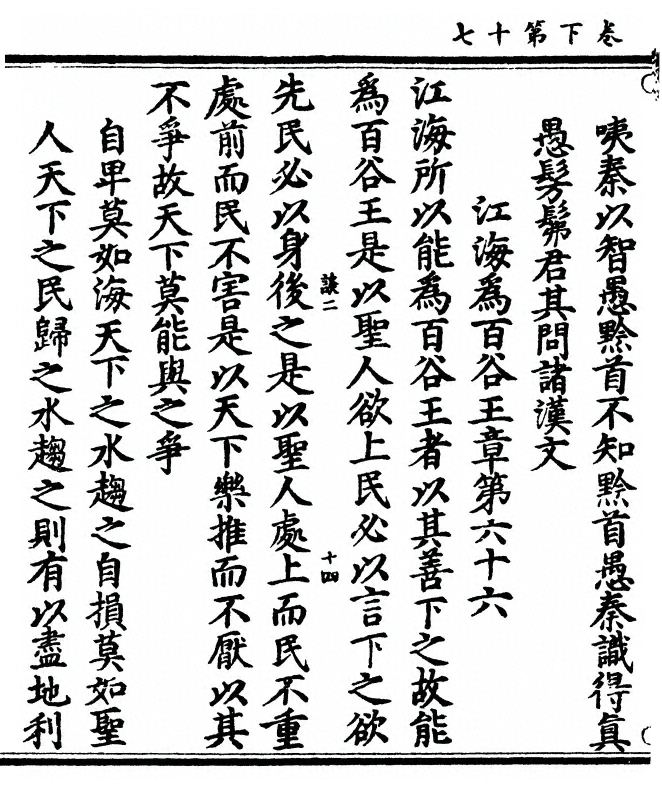 卷下第十七
咦秦以智愚黔首不知黔首愚秦識得眞
愚髣髴君其問諸漢文
江海爲百谷王章第六十六
江海所以能爲百谷王者以其善下之故能
爲百谷王是以聖人欲上民必以言下之欲
讓二 十四
先民必以身後之是以聖人處上而民不重
處前而民不害是以天下樂推而不厭以其
不爭故天下莫能與之爭
自卑莫如海天下之水趨之自損莫如聖
人天下之民歸之水趨之則有以盡地利